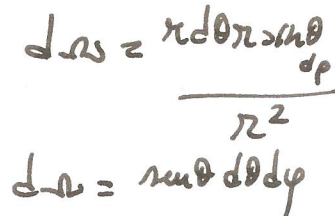 dΩ = r dθ r sen θ dφ / r²
dΩ = sen θ dθ dφ